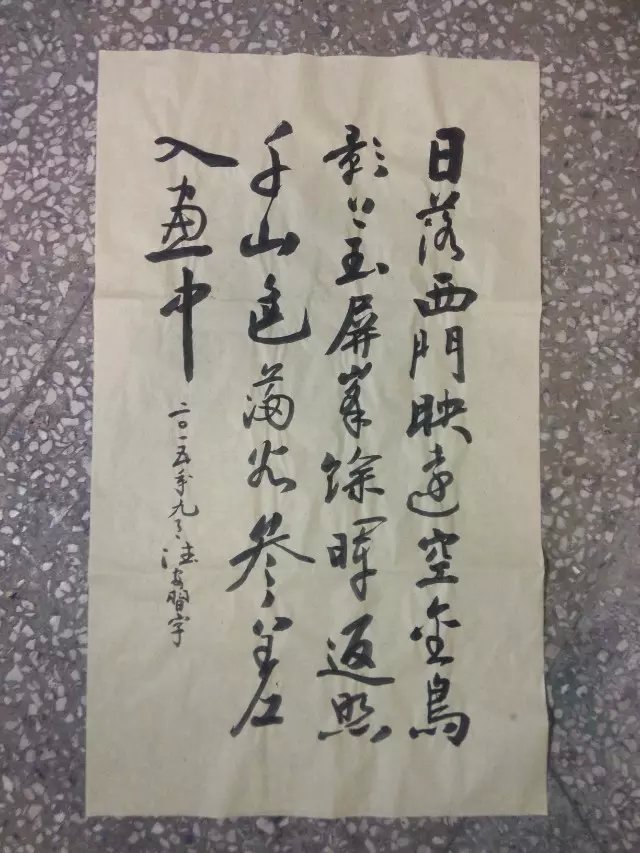 日落西門映遠空金鳥
影上玉屏峯餘暉返照
千山色滿谷參差
入畫中
二〇一五年九月